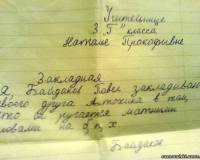 Учительнице
3 "Б" класса
Наталье Пракофьевне
Закладная
Я, Байдаков Павел закладываю
своего друга Антохина в том,
что он ругается матными
словами на 6 п.х.
Байдаков